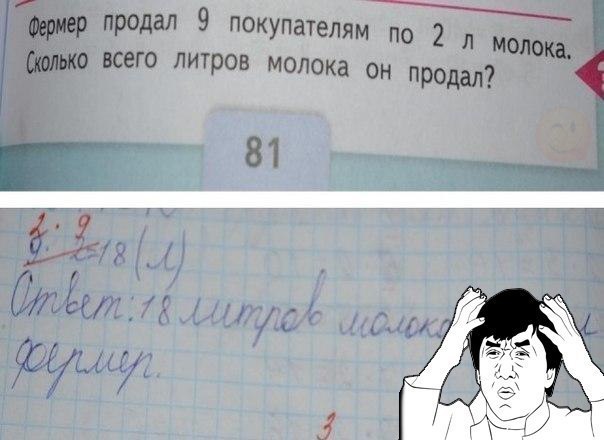 Фермер продал 9 покупателям по 2 л молока.
Сколько всего литров молока он продал?
81
2 · 9
9 · 2=18 (л)
Ответ: 18 литров
фермер.
3